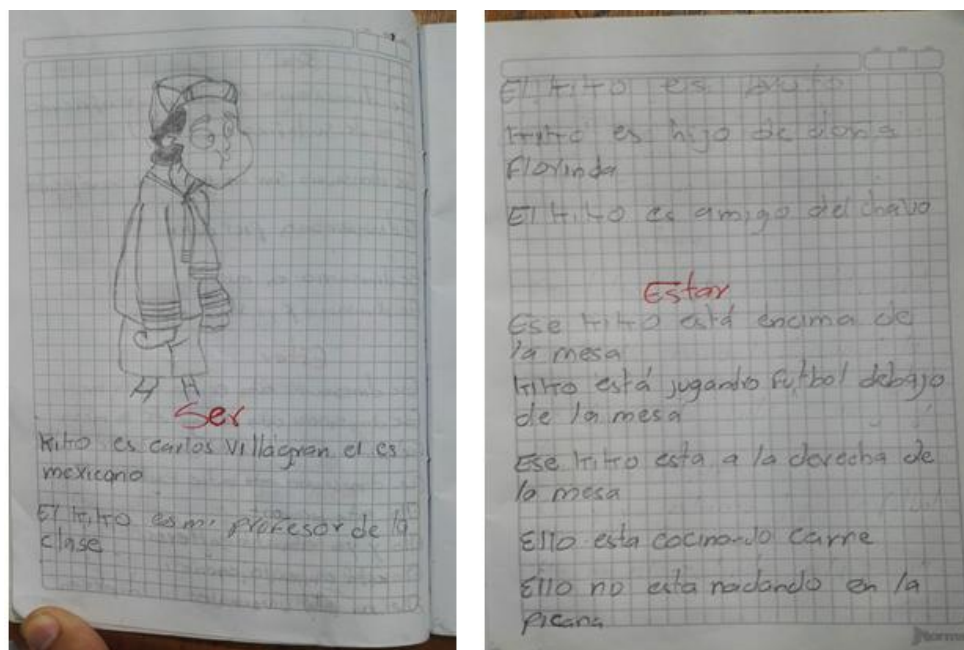 Ser
Kiko es carlos villagran el es
mexicano
El kiko es mi profesor de la
clase
El kiko es
kiko es hijo de doña
Florinda
El kiko es amigo del chavo
Estar
Ese kiko está encima de
la mesa
kiko está jugando Futbol debajo
de la mesa
Ese kiko esta a la derecha de
la mesa
Ello esta cocinando carne
Ello no esta nadando en la
Norma